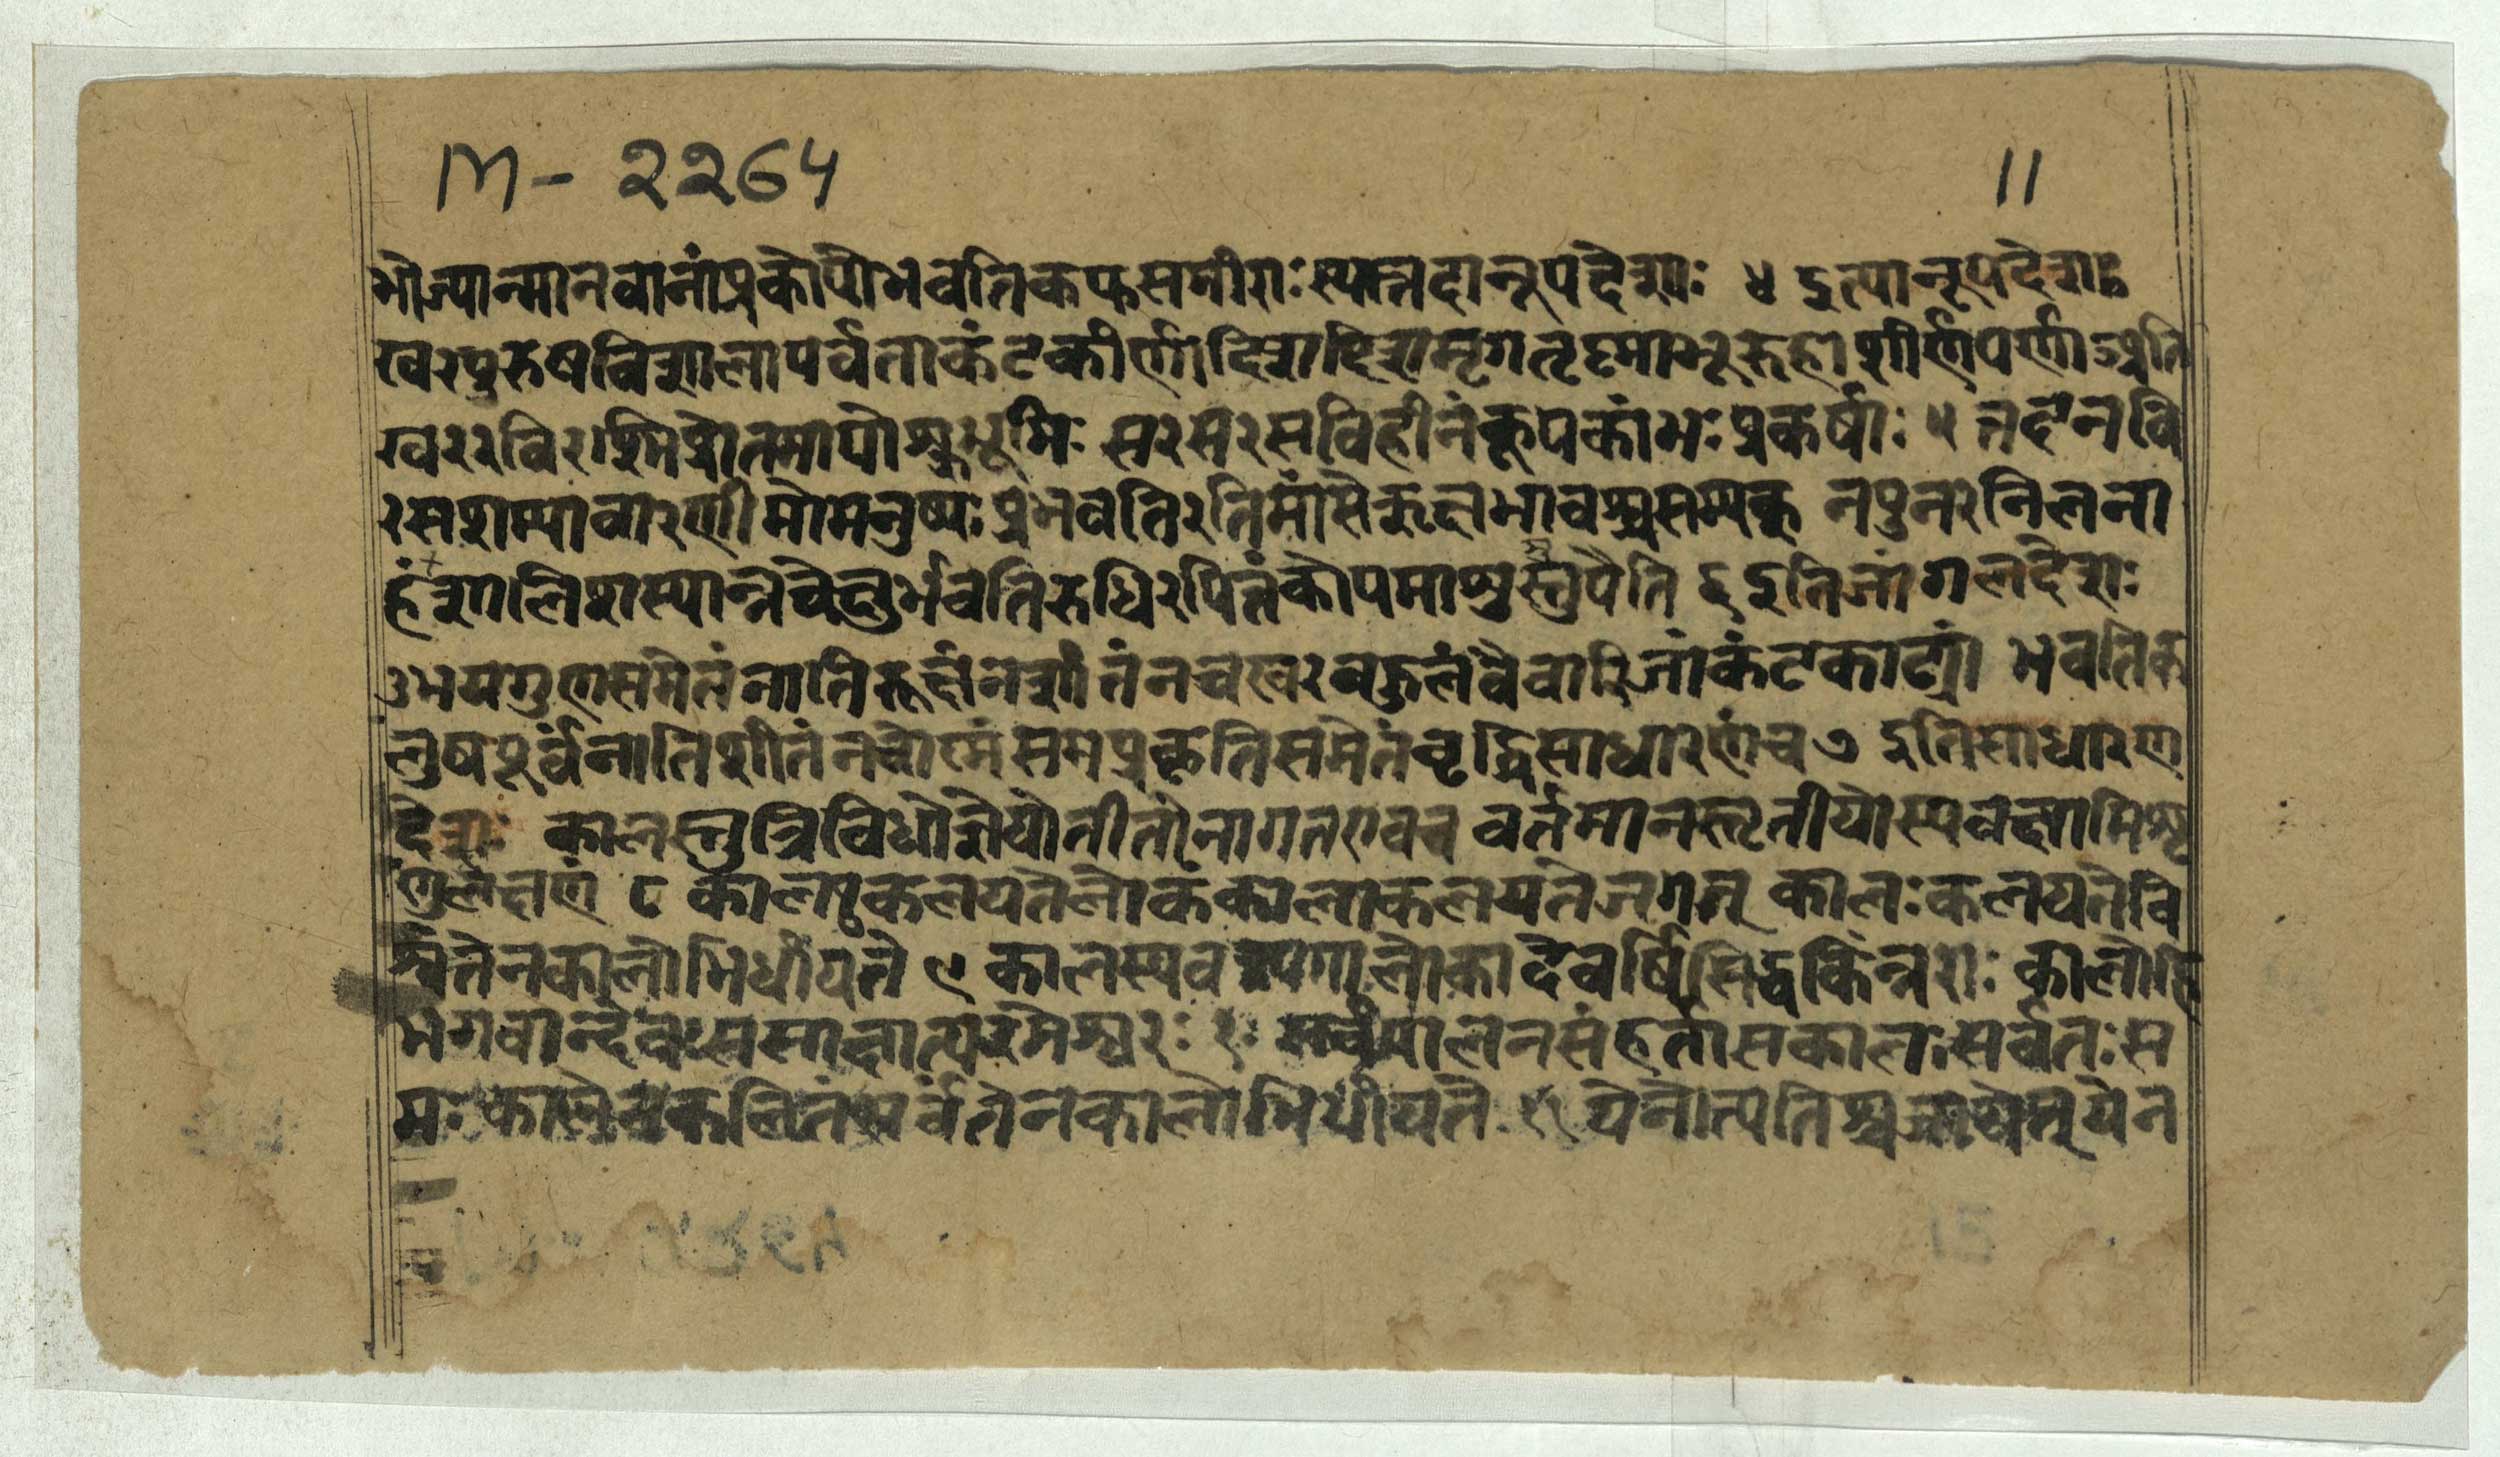 M- 2264 11
भोज्यान्मानवानांप्रकोपोभवतिकफसमीराःस्यात्तदानूपदेशाः ४ इत्यानूपदेशः
खरपुरुषविशालापर्वताकंटकीर्णादिशदिशमृगतृष्माभूरुहाशीर्णपर्णाअति
खररविरश्मिप्रोतमापोश्चभूमिः सरसरसविहीनंकूपकांभःप्रकर्षाः ५ तदनवि
रसशस्यावारणीमोमनुष्यःप्रभवतिरतिमांसेरूक्षभावश्चसम्यक् नपुनरनिलना
हंशालिशस्यान्नवेत्तुर्भवतिरुधिरपित्तंकोपमाशुस्तुपैति ६ इतिजांगलदेशः
उभयगुणसमेतंनातिरूक्षंनशीतंनचखरबहुलंवैवारिजांकंटकाढ्यां भवतिक
लुषपूर्वंनातिशीतंनचोष्मंसमप्रकृतिसमेतंवृद्धिसाधारणंच ७ इतिसाधारण
देशः कालस्तुत्रिविधोज्ञेयोतीतोनागतएवच वर्तमानस्तृतीयोस्यवक्ष्यामिशृ
णुलक्षणं ८ कालःकलयतेलोकंकालःकलयतेजगत् कालःकलयतेवि
श्वंतेनकालोभिधीयते ९ कालस्यवश्यगालोकादेवर्षिसिद्धकिंन्नराः कालोहि
भगवान्देवःससाक्षात्परमेश्वरः १० सर्वपालनसंहर्तासकालःसर्वतःस
मः कालेचकलितंसर्वंतेनकालोभिधीयते ११ येनोत्पतिश्चजायेत्येन